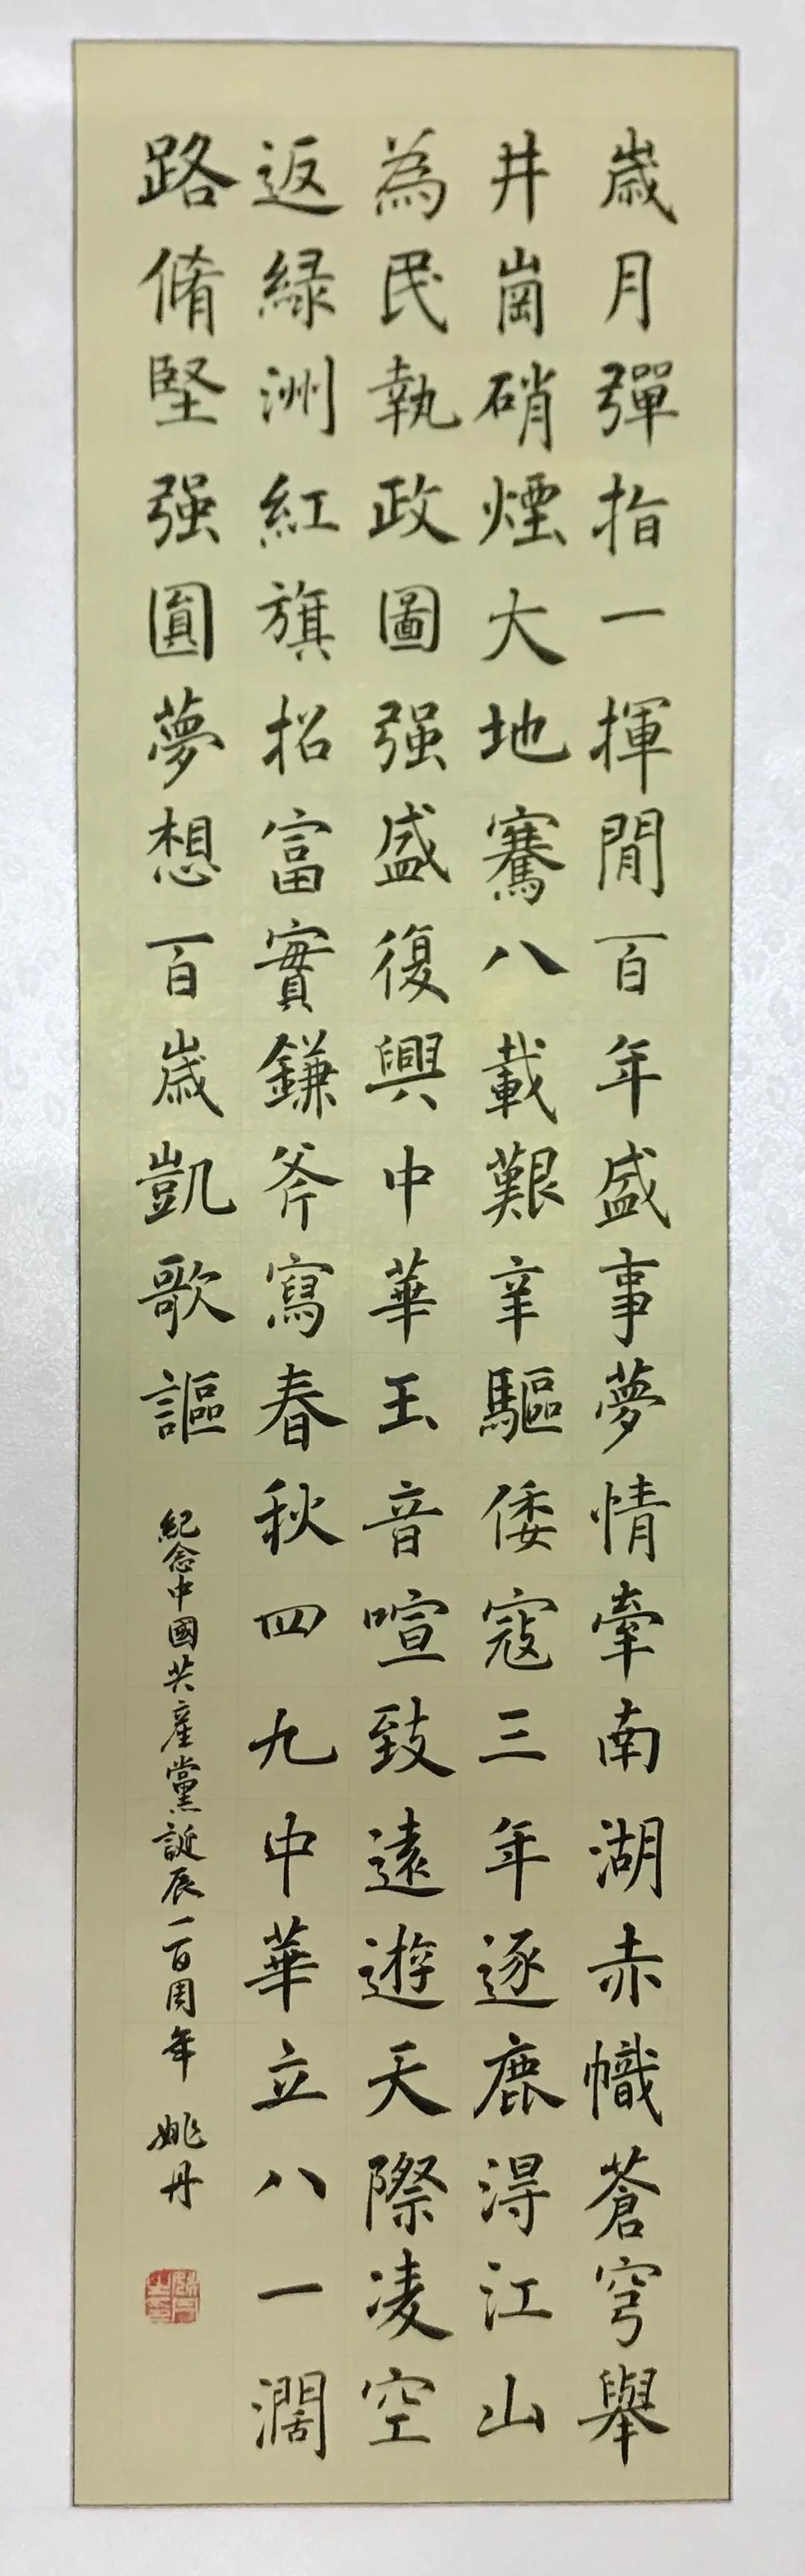 歲月彈指一揮間百年盛事夢情牽南湖赤幟蒼穹舉
井崗硝煙大地騫八載艱辛驅倭寇三年逐鹿淂江山
為民執政圖强盛復興中華玉音喧致遠遊天際凌空
返綠洲紅旗招富實鐮斧寫春秋四九中華立八一濶
路脩堅强圓夢想百歲凱歌謳
紀念中國共產黨誕辰一百周年 姚丹